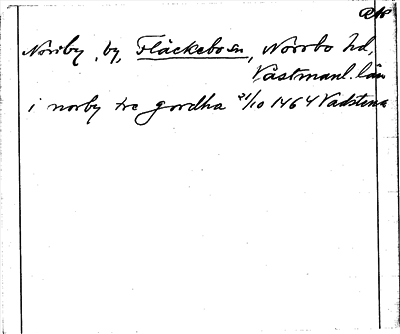 RAP
Norrby, by, Fläckebo sn, Norrbo hd,
Västmanl. län
i norby tre gordha 21/10 1464 Vadstena